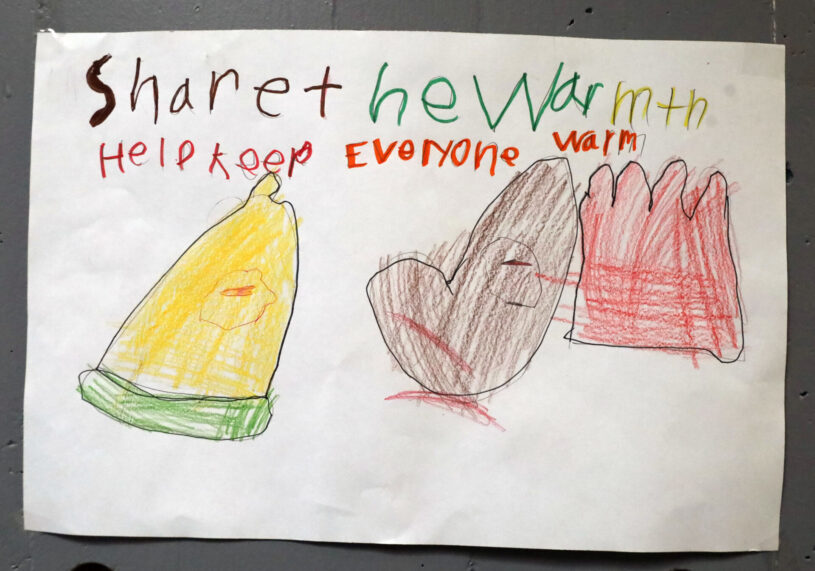 Sharet heWarmth
Help keep Everyone warm